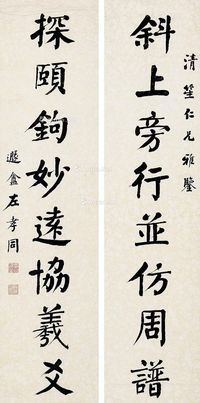 清笙仁兄雅鑒
斜上旁行並仿周譜
探頤鉤妙遠協羲爻
遯盦左孝同